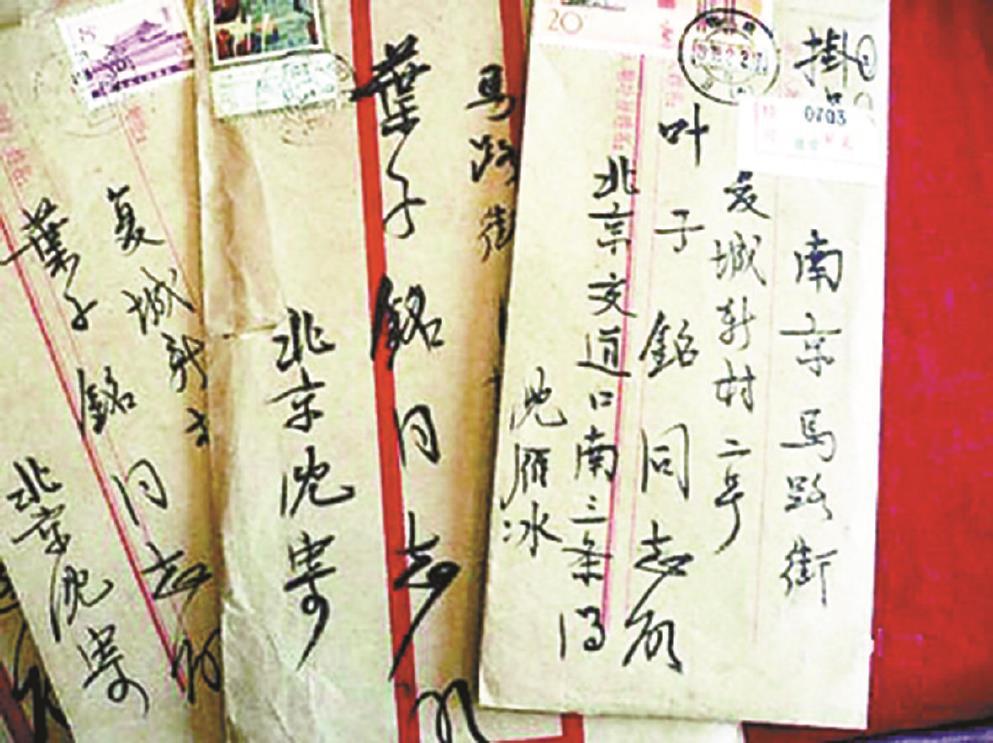 掛
0703
20
南京馬路街
复城新村二号
叶子銘同志启
北京交道口南三条
沈雁冰
馬路街
葉子銘同志
北京沈寄
复城新
葉子銘同志
北京沈寄